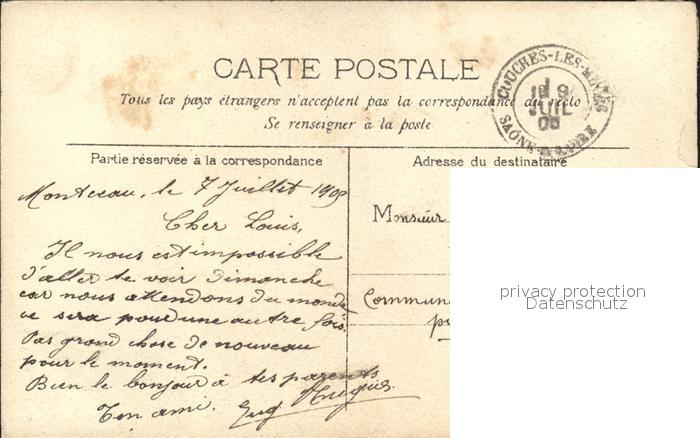 CARTE POSTALE
Tous les pays étrangers n'acceptent pas la correspondance au recto
Se renseigner à la poste
COUCHES-LES-MINES
JUIL
SAÔNE-ET-LOIRE
Partie réservée à la correspondance
Adresse du destinataire
Montceau, le 7 Juillet 190
Cher Louis,
Il nous est impossible
d'aller te voir dimanche
car nous attendons du monde
ce sera pour une autre fois.
Pas grand chose de nouveau
pour le moment.
Bien le bonjour à tes parents
Ton ami. Eug
Monsieur
Commun
privacy protection
Datenschutz